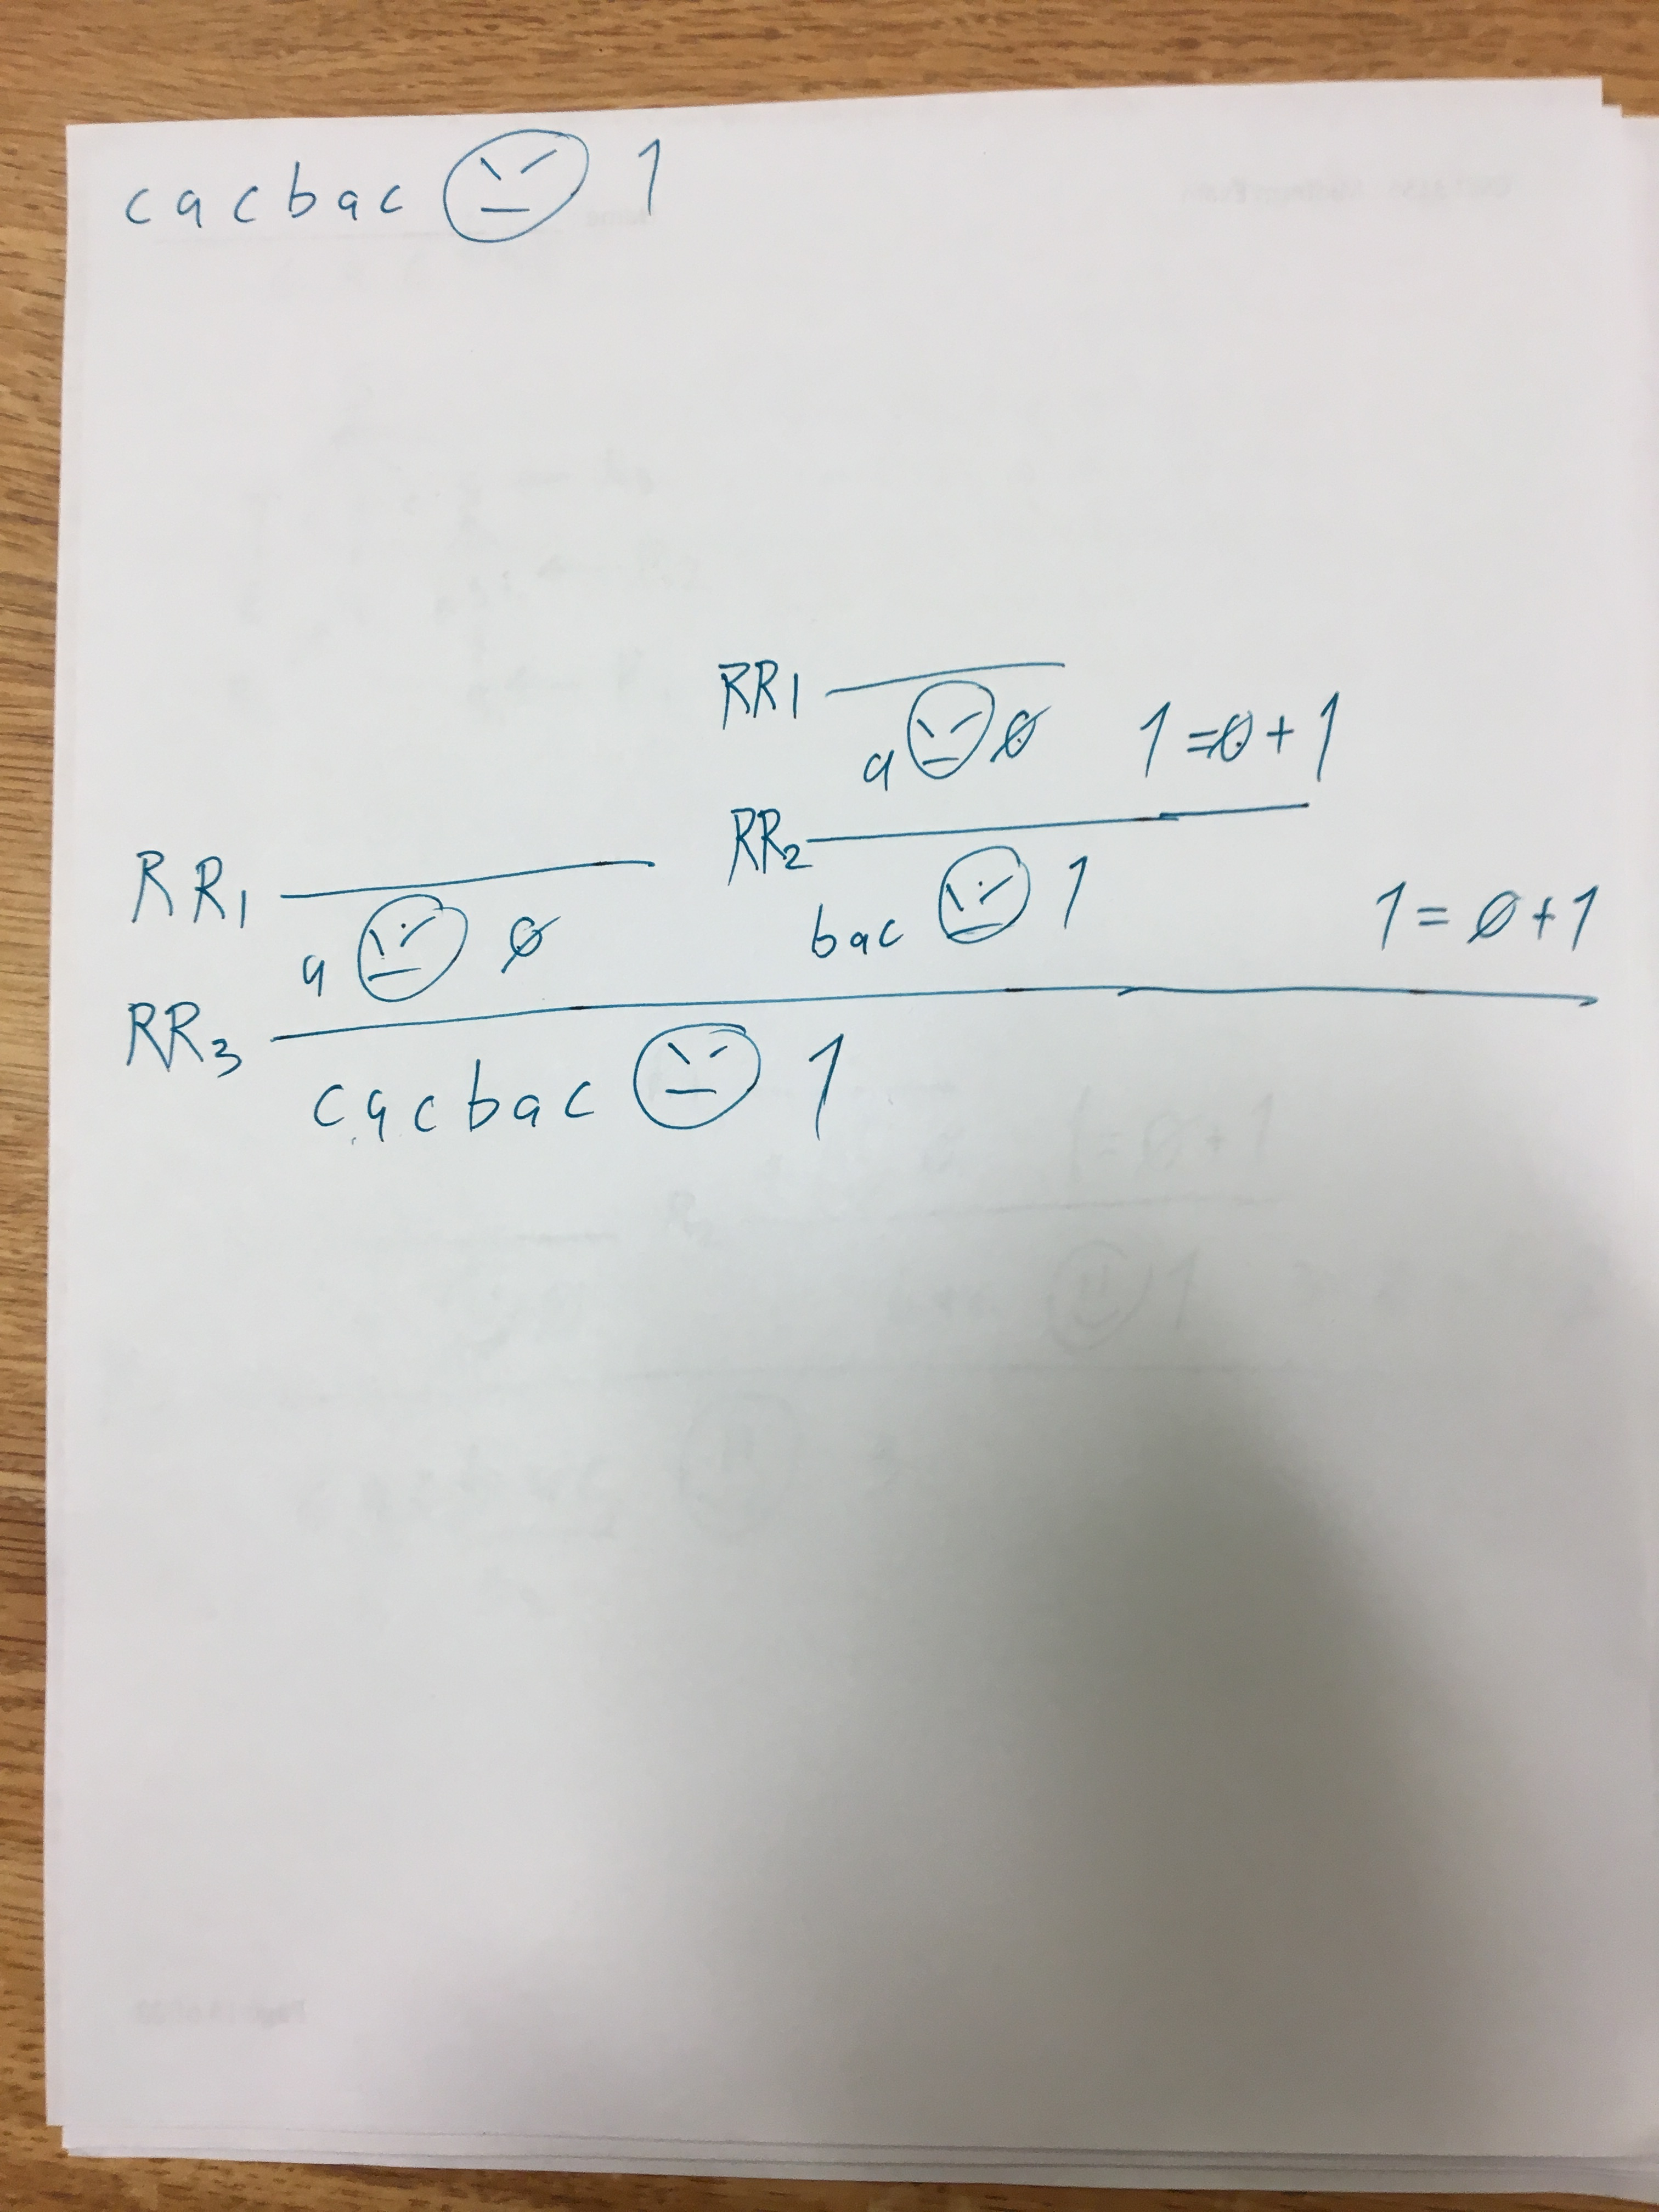 cacbac 😠 1
RR1
a 😠 0 1=0+1
RR2
bac 😠 1 1=0+1
RR1
a 😠 0
RR3
cacbac 😠 1